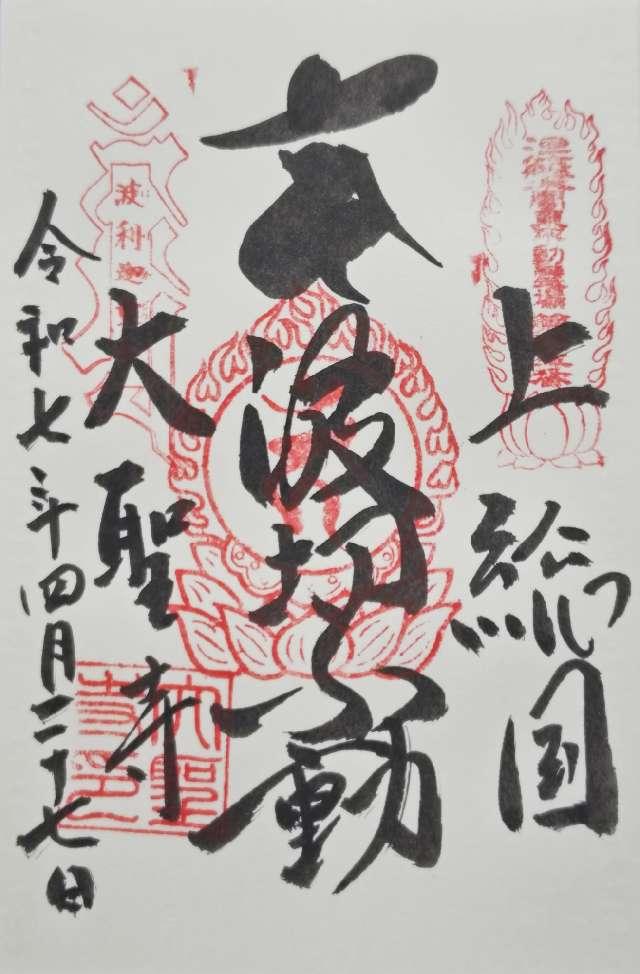 上総国
波切不動
大聖寺
令和七年四月二十七日
波利迦
大聖寺印